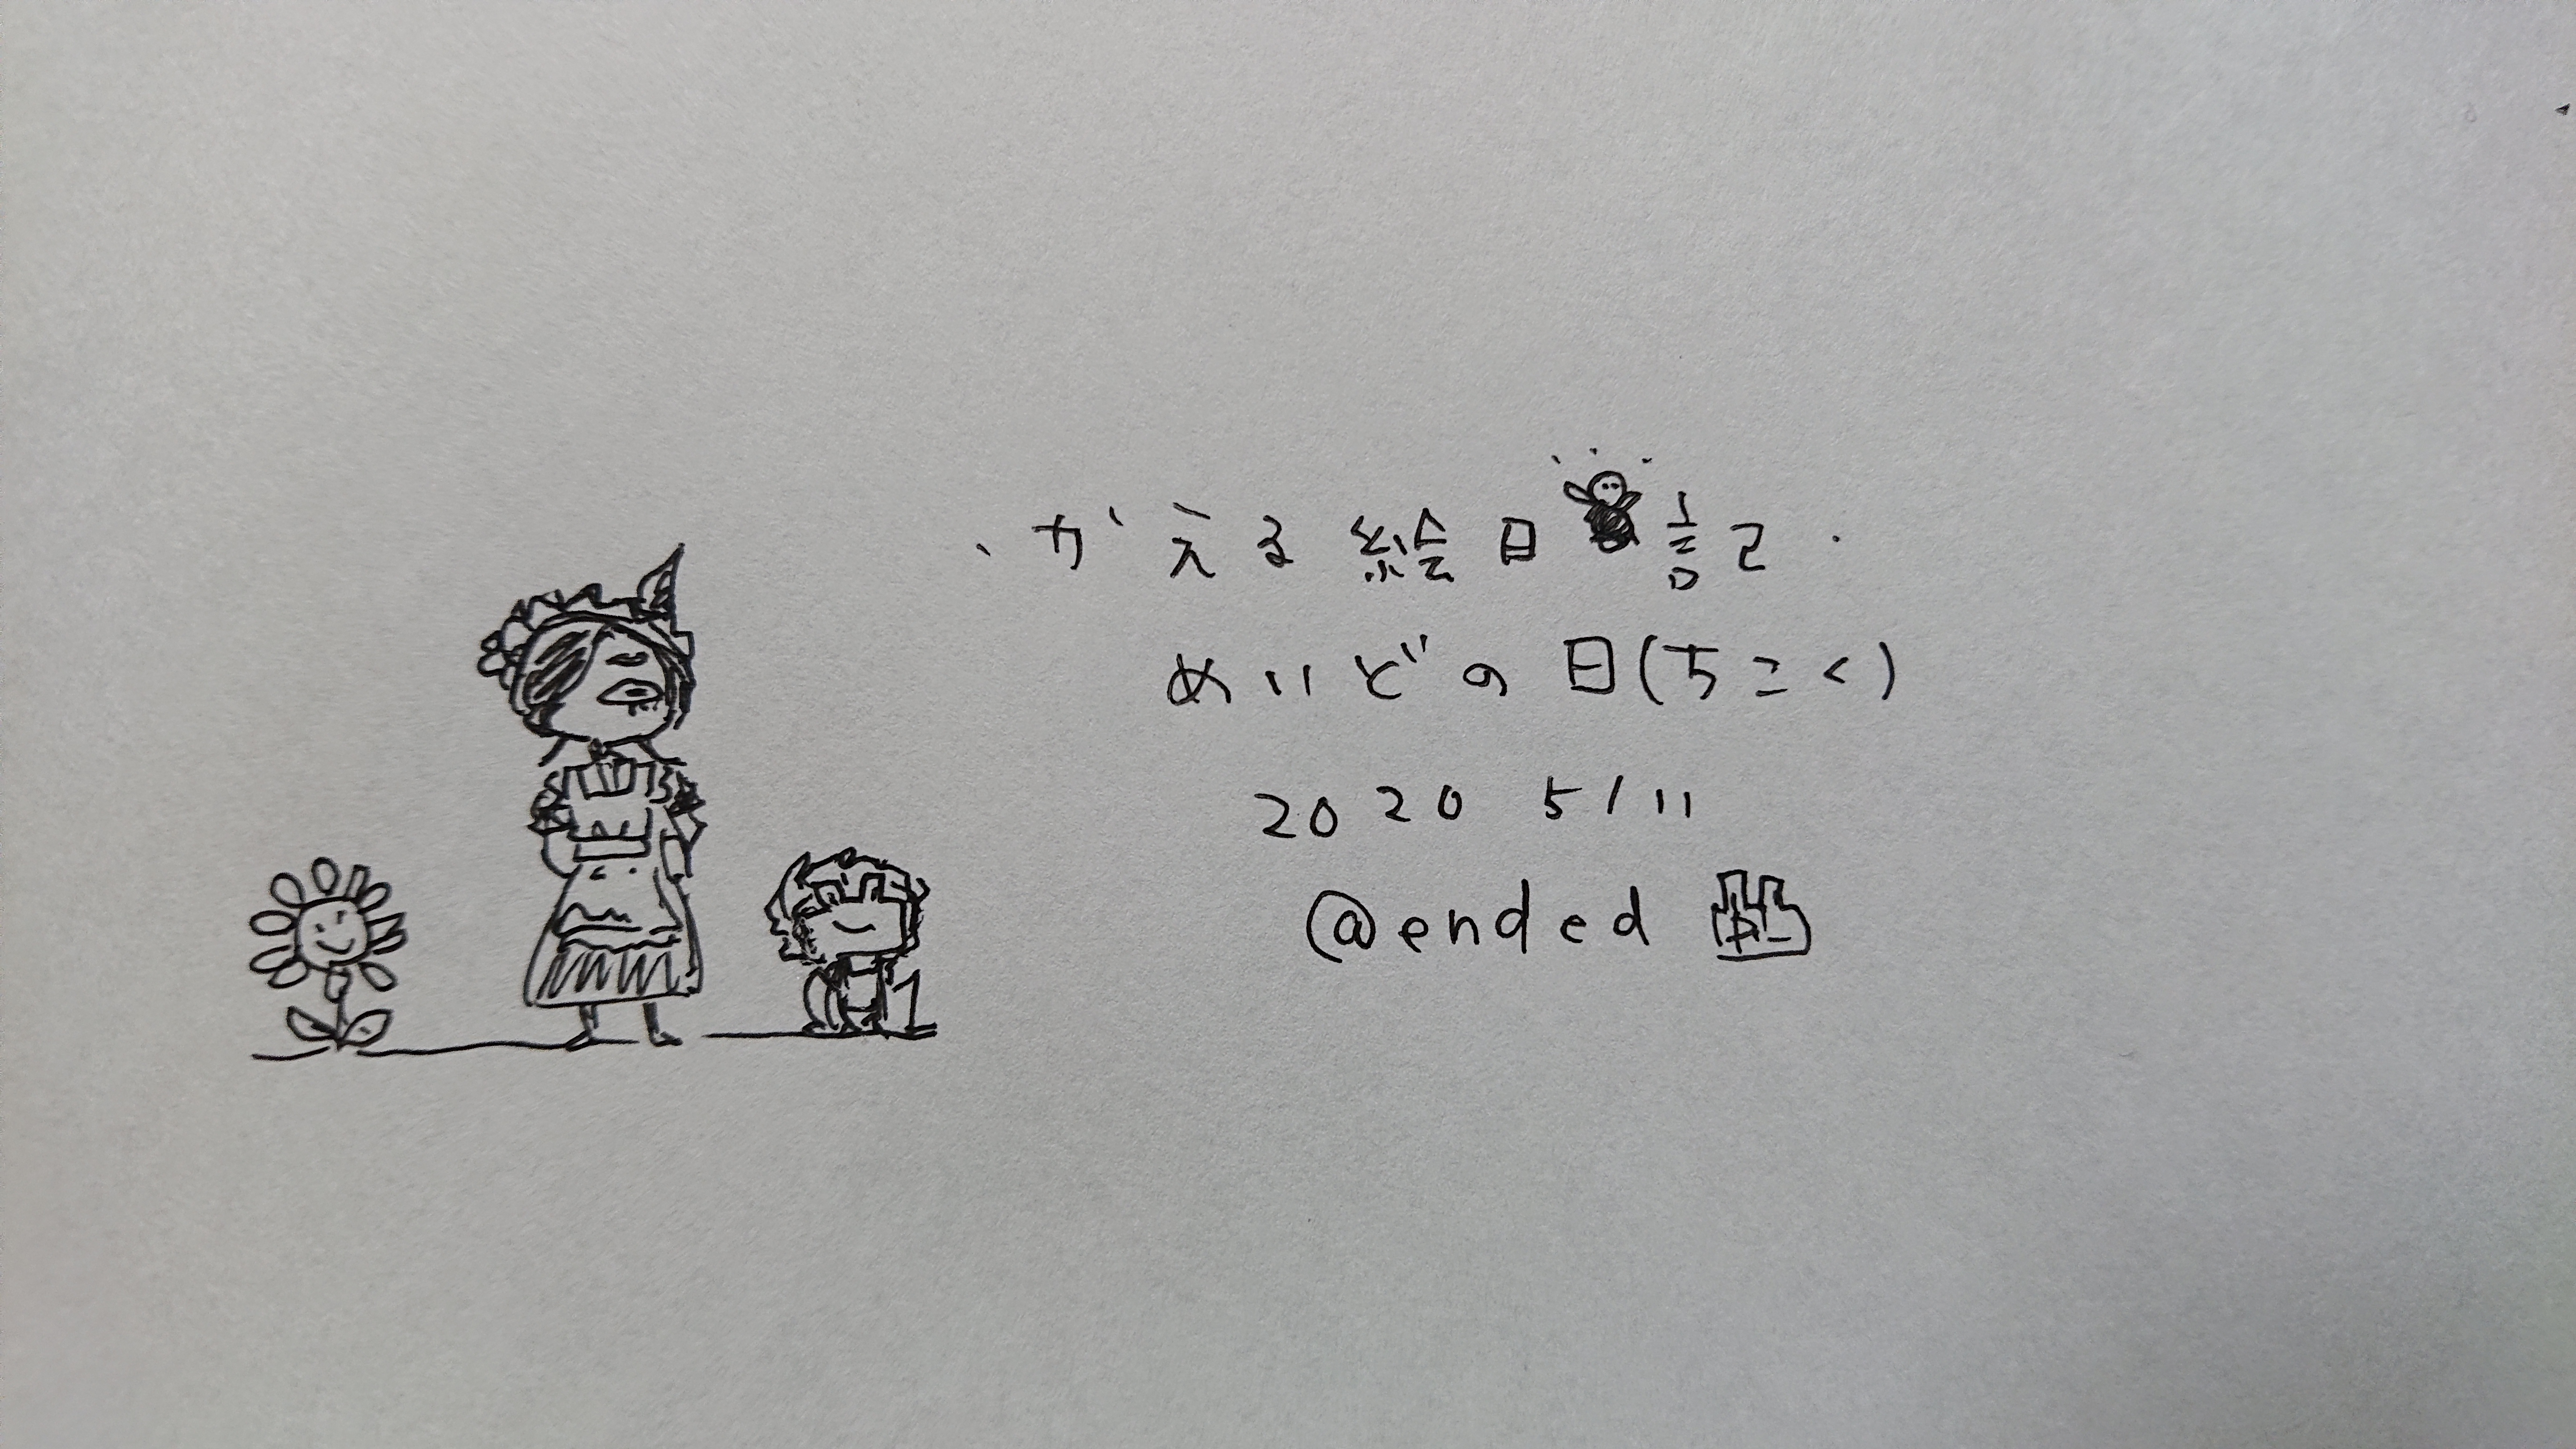 かえる絵日記
めいどの日(ちこく)
2020 5/11
@ended